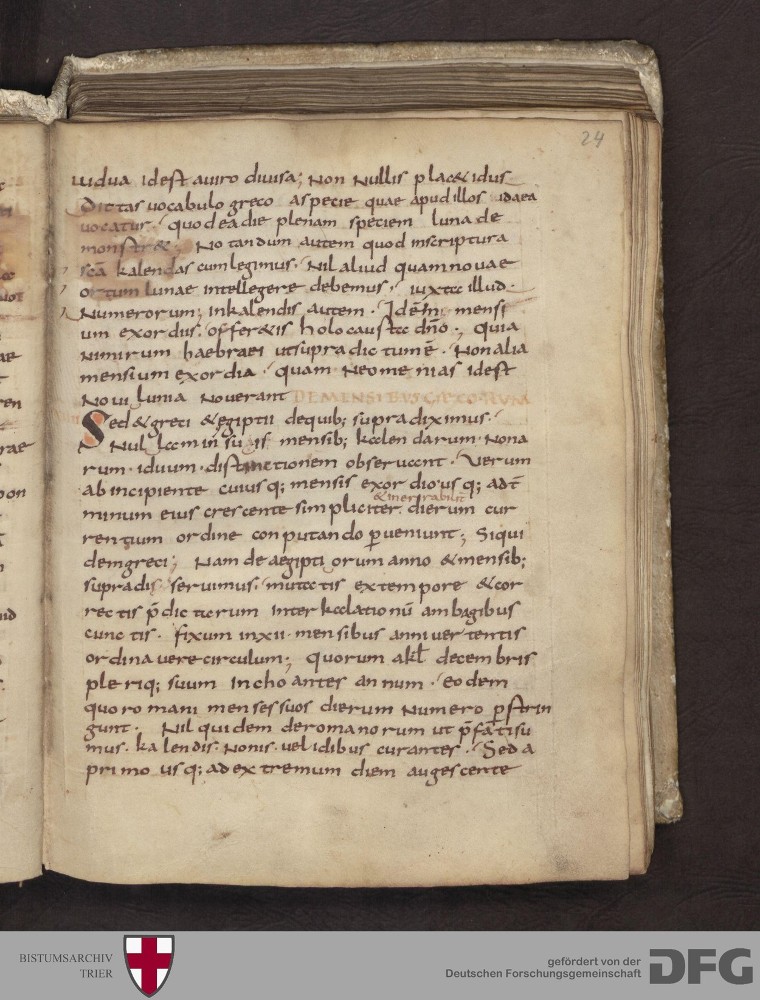 24
uidua idest auiro diuisa; Non Nullis plac& idus
Dictas uocabulo greco aspecie quae apud illos idaea
uocatur· quod ea die plenam speciem luna de
monstr&· No tandum autem quod inscriptura
scā kalendas cum legimus· Nil aliud quam nouae
ortum lunae intellegere debemus· iuxta illud·
Numerorum; in kalendis autem· Idēm̄ mensi
um exordiis· offer&is holocausta dn̄o·, quia
Nimirum haebraei ut supra dictum ē· Non alia
mensium exordia· quam Neomenias idest
Noui lunia Nouerant DEMENSIBUS GRECORUM
Sed & greci & egiptii de quib; supra diximus·
Nullam in suis mensib; kalendarum· Nona
rum· iduum· distinctionem obseruant· Verum
ab incipiente cuiusq; mensis exordio usq; ad t̄
minum eius crescente simpliciter dierum cur
rentium ordine conputando ꝑueniunt; Siqui
dem greci; Nam de aegiptiorum anno & mensib;
supra dis seruimus· mutatis ex tempore & cor
rectis p̄dictarum inter kalationū ambagibus
cunctis· fixum in xii· mensibus anni uertentis
ordinauere circulum; quorum akł decembris
pleriq; suum inchoantes annum· eodem
quo romani menses suos dierum Numero ꝑstrin
gunt· Nil quidem de romanorum ut p̄fati su
mus· kalendis· Nonis· uel idibus curantes· Sed a
primo usq; ad extremum diem augescente
BISTUMSARCHIV
TRIER
gefördert von der
Deutschen Forschungsgemeinschaft
DFG